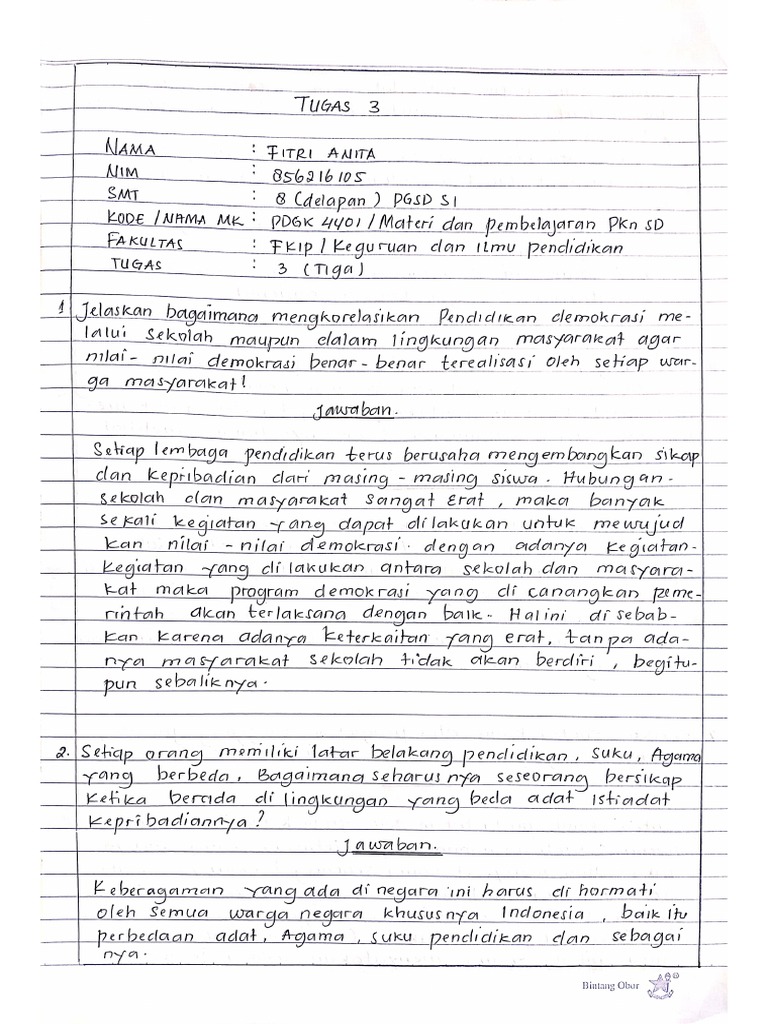 TUGAS 3
NAMA : FITRI ANITA
NIM : 856216105
SMT : 8 (delapan) PGSD S1
KODE/NAMA MK : PDGK 4401/Materi dan pembelajaran PKn SD
FAKULTAS : FKIP/Keguruan dan Ilmu pendidikan
TUGAS : 3 (Tiga)
1 Jelaskan bagaimana mengkorelasikan Pendidikan demokrasi me-
lalui sekolah maupun dalam lingkungan masyarakat agar
nilai-nilai demokrasi benar-benar terealisasi oleh setiap war-
ga masyarakat!
Jawaban.
Setiap lembaga pendidikan terus berusaha mengembangkan sikap
dan kepribadian dari masing-masing siswa. Hubungan-
sekolah dan masyarakat sangat erat, maka banyak
sekali kegiatan yang dapat dilakukan untuk mewujud
kan nilai-nilai demokrasi. dengan adanya kegiatan-
kegiatan yang di lakukan antara sekolah dan masyara-
kat maka program demokrasi yang di canangkan peme-
rintah akan terlaksana dengan baik. Hal ini di sebab-
kan karena adanya keterkaitan yang erat, tanpa ada-
nya masyarakat sekolah tidak akan berdiri, begitu-
pun sebaliknya.
2. Setiap orang memiliki latar belakang pendidikan, suku, Agama
yang berbeda, Bagaimana seharusnya seseorang bersikap
ketika berada di lingkungan yang beda adat istiadat
kepribadiannya?
Jawaban.
Keberagaman yang ada di negara ini harus di hormati
oleh semua warga negara khususnya Indonesia, baik itu
perbedaan adat, Agama, suku pendidikan dan sebagai
nya.
Bintang Obor